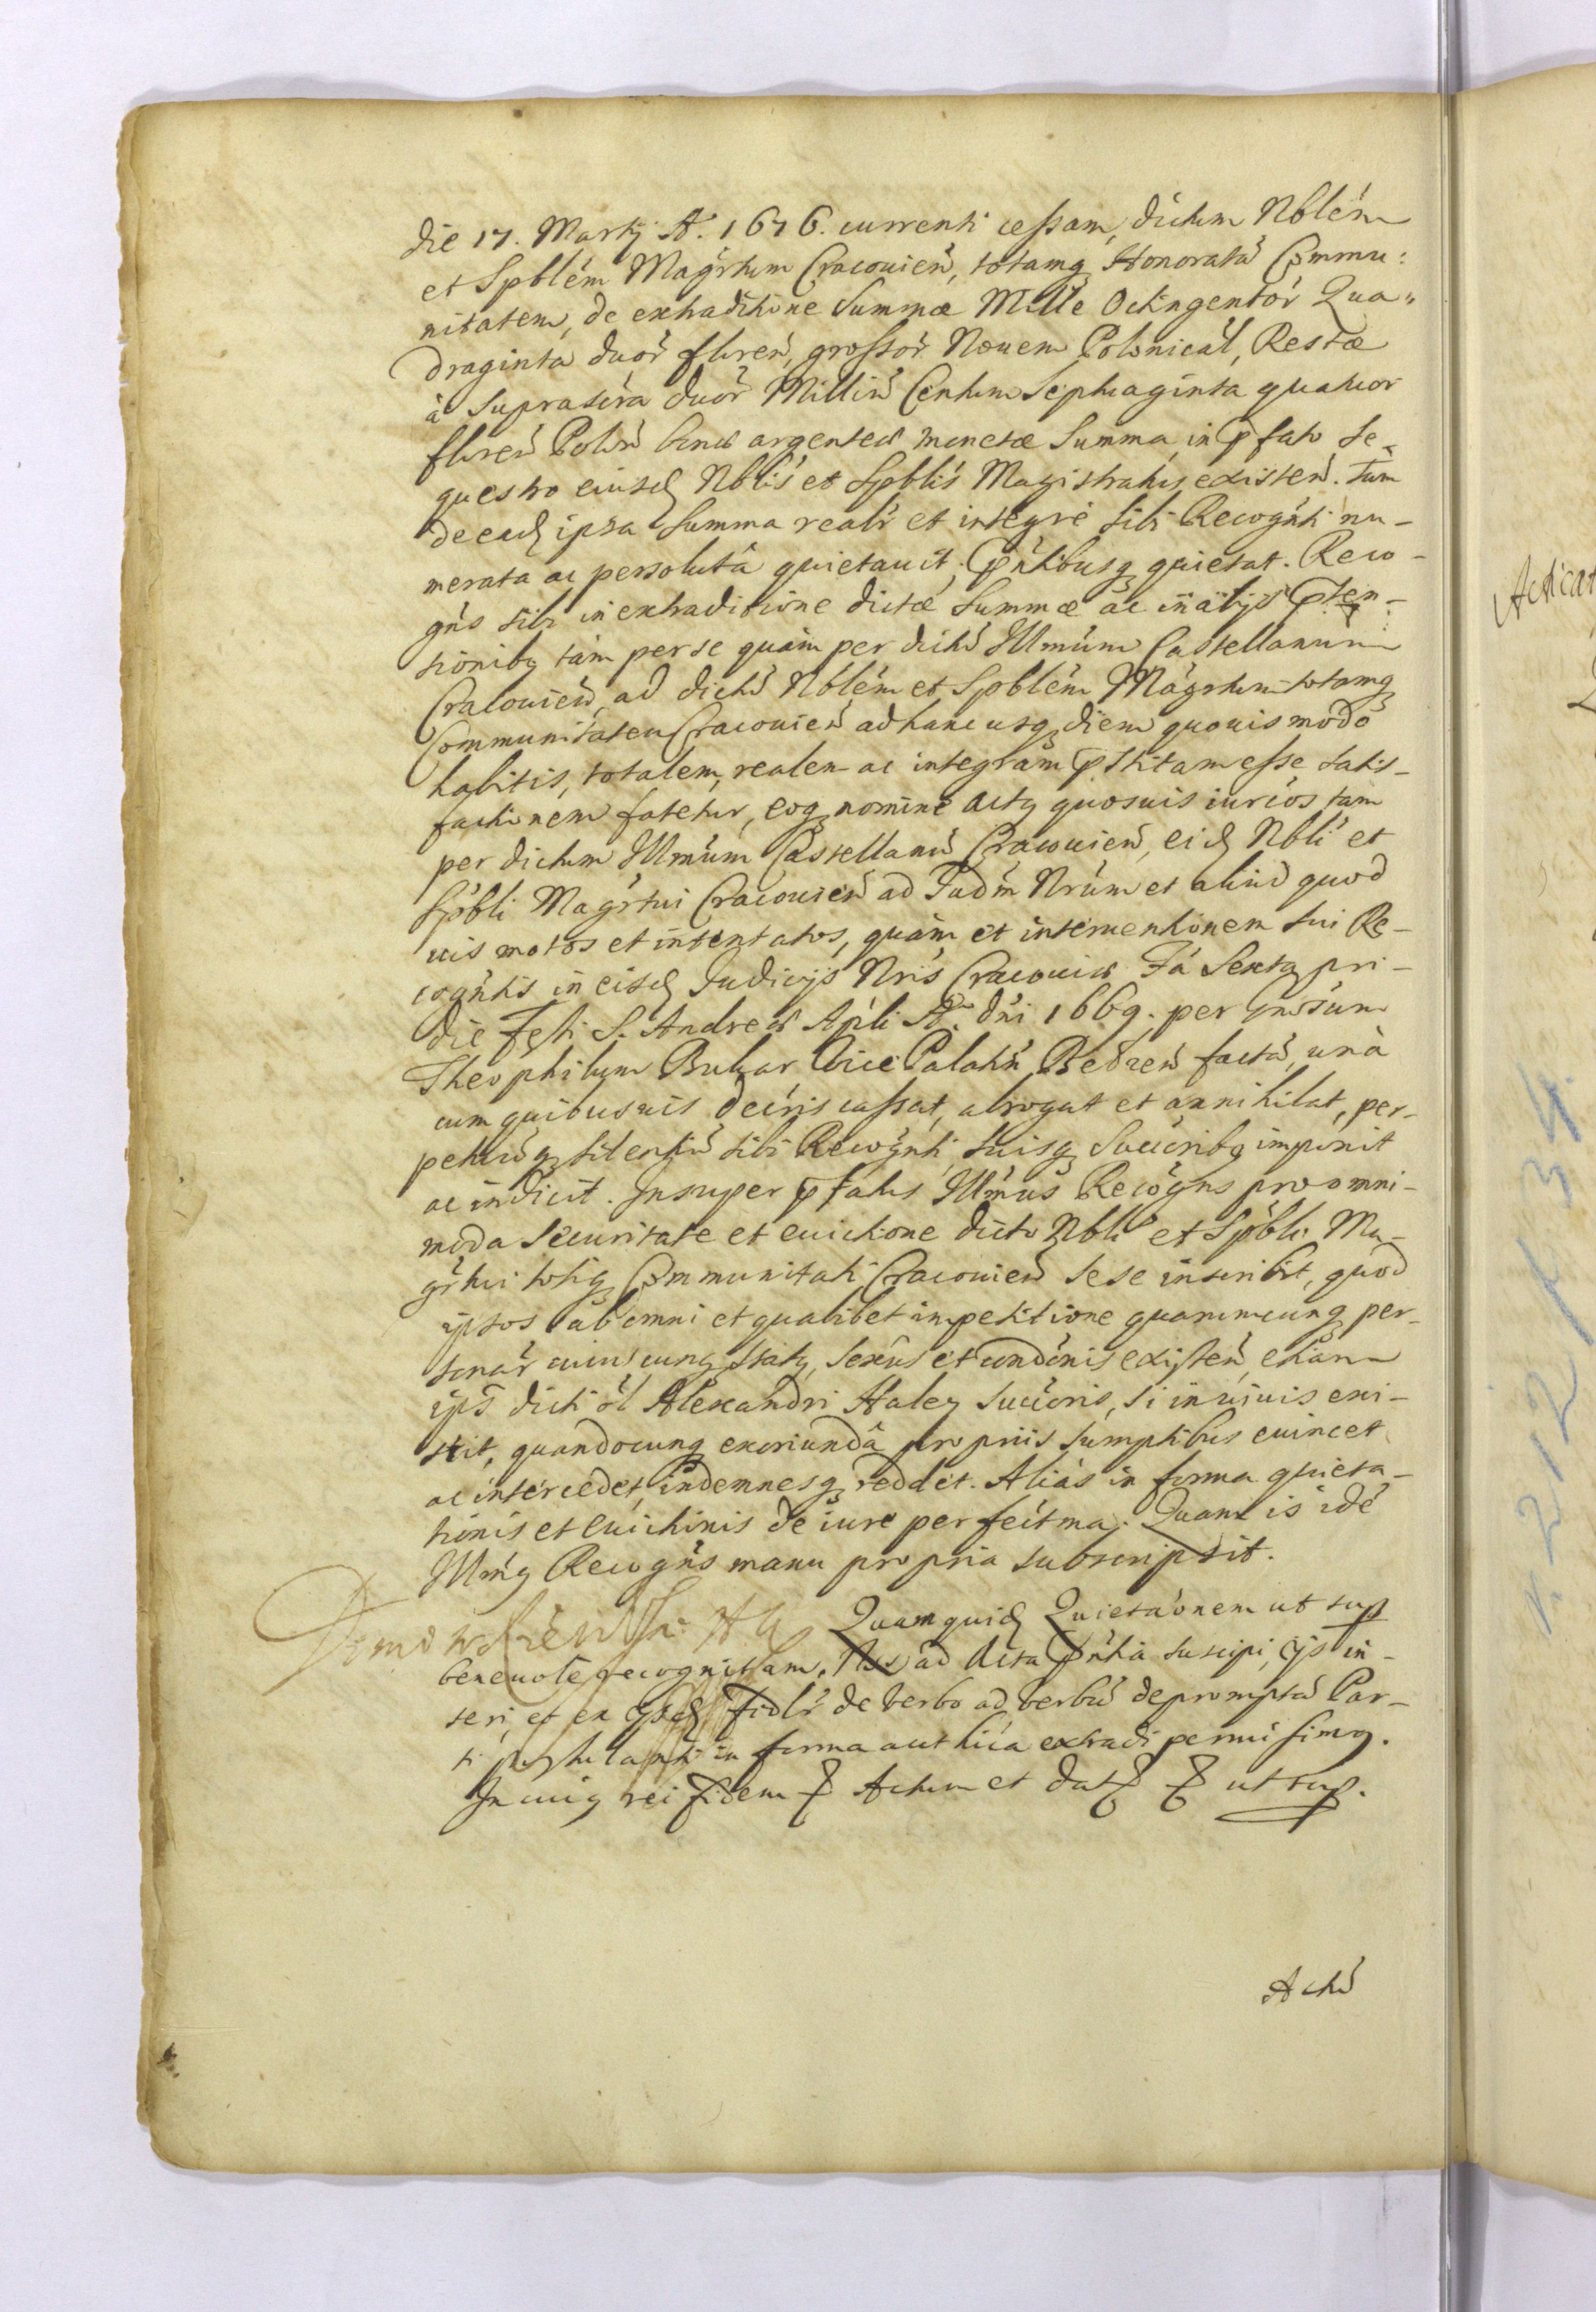 die 17. Martij A. 1676. currenti cessam, dictum Nblém
et Spblém Magrtum Cracovień, totamq Honoratá Commu:
nitatem, de extraditione Summæ Mille Octingentór Qua„
draginta duor floreń, grossór Nouem Polonicál, Restæ
à suprascra duor Milliú Centum Septuaginta quatuor
floreń Poloń bonæ argenteæ monetæ Summa, in pfato Se-
questro eiusd Nblis et Spblis Magistratus existeń. Tum
de ead ipsa Summa realr et integre sibi Recognti nu-
merata ac persoluta quietauit, pntibusq quietat. Reco-
gns sibi in extraditione dictæ Summæ ac in alijs pten-
tionibq tàm per se quàm per dictú Illmúm Castellanum
Cracouień, ad dictú Nblém et Spblém Magrtum totamq
Communitatem Cracouień ad hanc usq diem quouis modo
habitis, totalem, realem ac integram pstitam esse satis-
factionem fatetur, eoq nomine actq quosuis iurcos tam
per dictum Illmúm Castellanú Cracouień, eid Nbli et
Spbli Magrtui Cracouień ad Judm Nrúm et aliud quod
uis motos et intentatos, quàm et interuentionem sui Re-
cogntis in eisd Judicijs Nris Cracouiæ Fa Sexta pri-
die Festi S. Andreæ Apli A. dni 1669. per Gnosum
Theophilum Bulhar Vice Palatń Belzeń factá, unà
cum quibusuis decris cassat, abrogat et annihilat, per-
petuúq silentiú sibi Recognti suisq Succribq imponit
ac indicit. Insuper pfatus Illmus Recogns pro omni-
moda Securitate et euictione dicto Nbli et Spbli Ma-
grtui totiq Communitati Cracouień sese inscribit, quod
ipsos ab omni et qualibet impetitione quarumcunq per-
sonar cuiuscunq statq, sexus et condonis existeń, etiam
ips dicti ol Alexandri Haley Succoris, si in uiuis exi-
stit, quandocunq exoriunda proprijs sumptibus euincet
ac intercedet, indemnesq reddet. Aliàs in forma quieta-
tionis et euictionis de iure perfectma. Quam is idé
Illmq Recogns manu propria subscripsit.
Quam quid Quietaonem ut sup
beneuole recognitam, Nos ad Acta pntia suscipi, ijs in-
seri, et ex ijsd fidlr de verbo ad verbú depromptá Par-
ti postulanti in forma authica extradi permisimq.
In cuiq rei fidem Actum et dat ut sup.
Actú